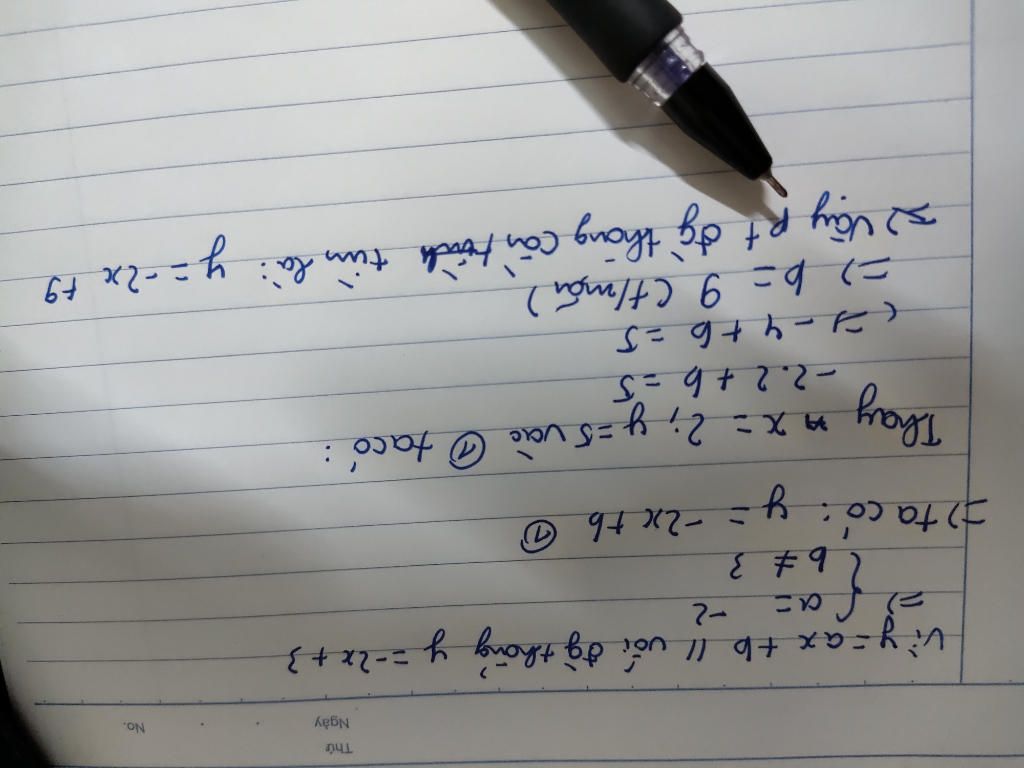 Thứ
Ngày . . No.
Vì y = ax + b // với đg thẳng y = -2x + 3
=> { a = -2
{ b ≠ 3
=> ta có: y = -2x + b ①
Thay x = 2; y = 5 vào ① ta có:
-2.2 + b = 5
(=> -4 + b = 5
=> b = 9 (t/mãn)
=> Vậy pt đg thẳng cần tìm là: y = -2x + 9